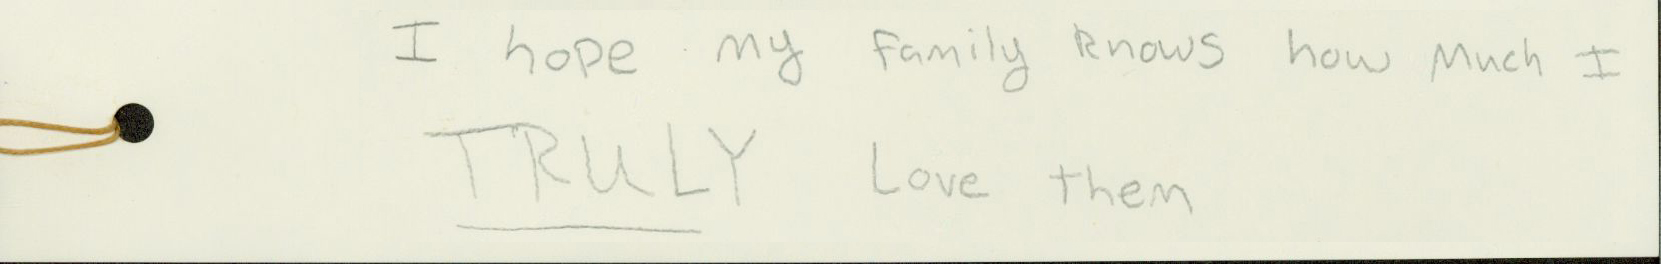 I hope my family knows how Much I
TRULY Love them